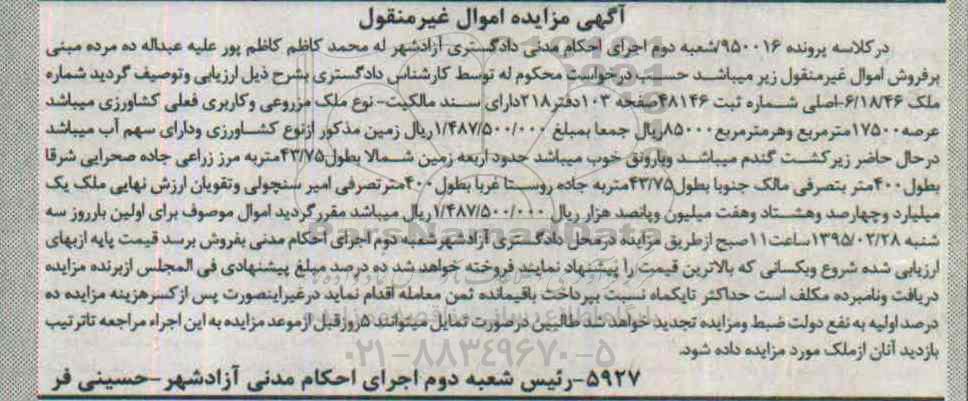 آگهی مزایده اموال غیرمنقول
درکلاسه پرونده ۹۵۰۰۱۶/شعبه دوم اجرای احکام مدنی دادگستری آزادشهر له محمد کاظم کاظم پور علیه عبداله ده مرده مبنی
برفروش اموال غیرمنقول زیر میباشد حسب درخواست محکوم له توسط کارشناس دادگستری بشرح ذیل ارزیابی وتوصیف گردید شماره
ملک ۶/۱۸/۴۶-اصلی شماره ثبت ۴۸۱۴۶صفحه ۱۰۳دفتر۲۱۸دارای سند مالکیت- نوع ملک مزروعی وکاربری فعلی کشاورزی میباشد
عرصه۱۷۵۰۰مترمربع وهرمترمربع۸۵۰۰۰ریال جمعا بمبلغ ۱/۴۸۷/۵۰۰/۰۰۰ریال زمین مذکور ازنوع کشاورزی ودارای سهم آب میباشد
درحال حاضر زیرکشت گندم میباشد وبارونق خوب میباشد حدود اربعه زمین شمالا بطول۴۳/۷۵متربه مرز زراعی جاده صحرایی شرقا
بطول۴۰۰متر بتصرفی مالک جنوبا بطول۴۳/۷۵متربه جاده روستا غربا بطول۴۰۰مترتصرفی امیر سنچولی وتقویان ارزش نهایی ملک یک
میلیارد وچهارصد وهشتاد وهفت میلیون وپانصد هزار ریال ۱/۴۸۷/۵۰۰/۰۰۰ریال میباشد مقررگردید اموال موصوف برای اولین بارروز سه
شنبه ۱۳۹۵/۰۲/۲۸ساعت۱۱صبح ازطریق مزایده درمحل دادگستری آزادشهرشعبه دوم اجرای احکام مدنی بفروش برسد قیمت پایه ازبهای
ارزیابی شده شروع وبکسانی که بالاترین قیمت را پیشنهاد نمایند فروخته خواهد شد ده درصد مبلغ پیشنهادی فی المجلس ازبرنده مزایده
دریافت ونامبرده مکلف است حداکثر تایکماه نسبت بپرداخت باقیمانده ثمن معامله اقدام نماید درغیراینصورت پس ازکسرهزینه مزایده ده
درصد اولیه به نفع دولت ضبط ومزایده تجدید خواهد شد طالبین درصورت تمایل میتوانند ۵روزقبل ازموعد مزایده به این اجراء مراجعه تاترتیب
بازدید آنان ازملک مورد مزایده داده شود.
۵۹۲۷-رئیس شعبه دوم اجرای احکام مدنی آزادشهر-حسینی فر
ParsNamadData
۰۲۱-۸۸۳۴۹۶۷۰-۵